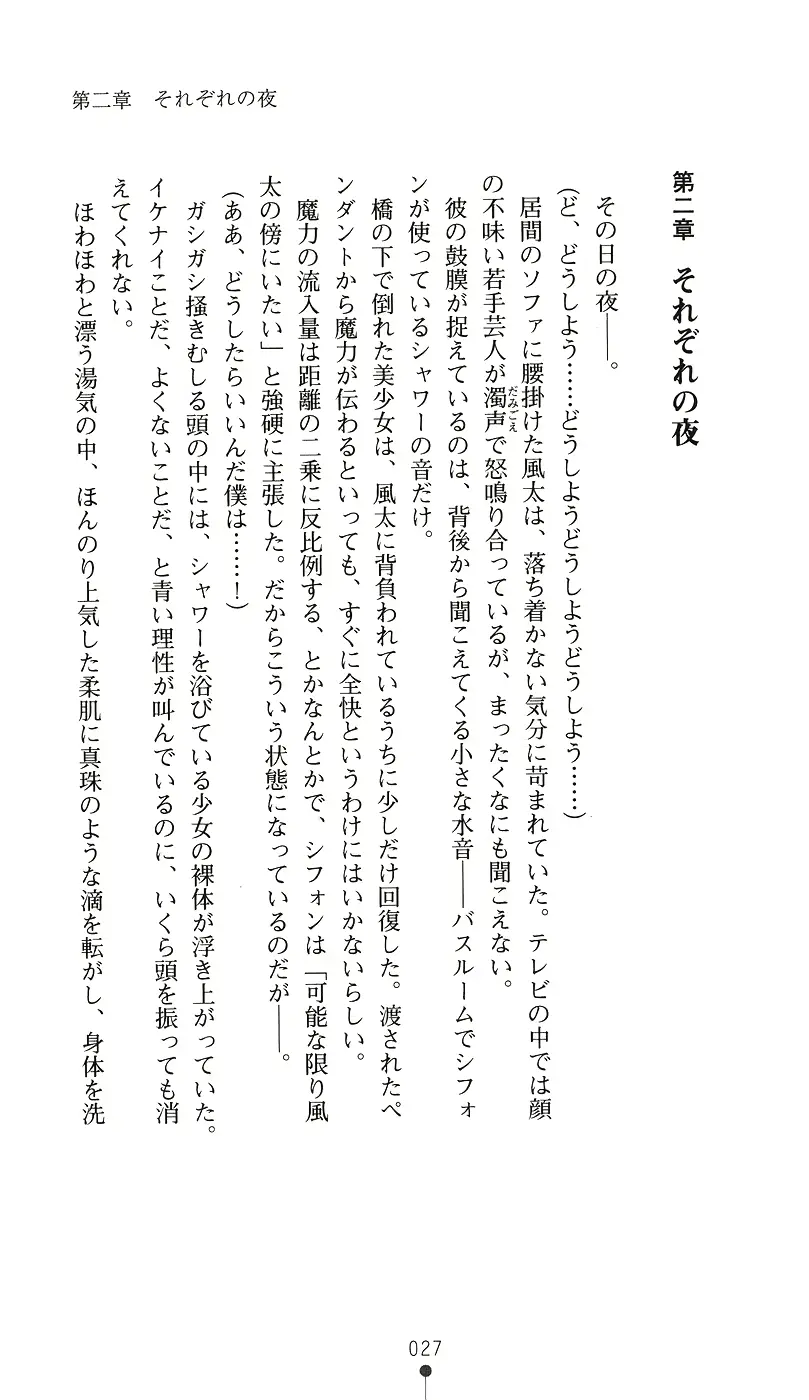 第二章　それぞれの夜
第二章　それぞれの夜
その日の夜――。
(ど、どうしよう……どうしようどうしようどうしよう……)
居間のソファに腰掛けた風太は、落ち着かない気分に苛まれていた。テレビの中では顔
の不味い若手芸人が濁声で怒鳴り合っているが、まったくなにも聞こえない。
だみごえ
彼の鼓膜が捉えているのは、背後から聞こえてくる小さな水音――バスルームでシフォ
ンが使っているシャワーの音だけ。
橋の下で倒れた美少女は、風太に背負われているうちに少しだけ回復した。渡されたペ
ンダントから魔力が伝わるといっても、すぐに全快というわけにはいかないらしい。
魔力の流入量は距離の二乗に反比例する、とかなんとかで、シフォンは「可能な限り風
太の傍にいたい」と強硬に主張した。だからこういう状態になっているのだが――。
(ああ、どうしたらいいんだ僕は……！)
ガシガシ掻きむしる頭の中には、シャワーを浴びている少女の裸体が浮き上がっていた。
イケナイことだ、よくないことだ、と青い理性が叫んでいるのに、いくら頭を振っても消
えてくれない。
ほわほわと漂う湯気の中、ほんのり上気した柔肌に真珠のような滴を転がし、身体を洗
027